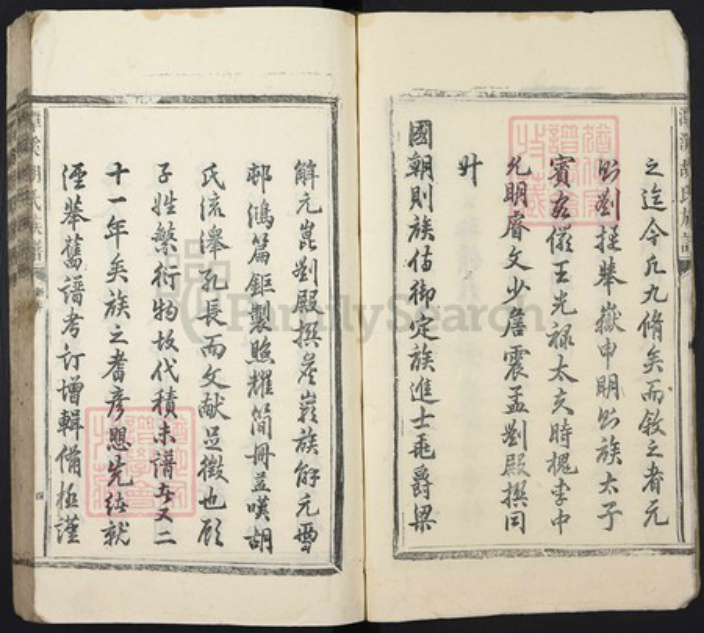 之迄今凡九脩矣而敘之者元
則劉提舉嶽申明則族太子
賓客儼王光祿太夫時槐李中
允明睿文少詹震孟劉殿撰同
升
國朝則族侍御定族進士飛爵梁
解元崑劉殿撰族解元
鄰鴻篇鉅製照耀簡冊蓋嘆胡
氏流澤孔長而文献足徵也顧
子姓繁衍物故代積未譜者又二
十一年矣族之耆彥愳先緒就
湮舉舊譜考訂增輯備極謹
胡氏族譜
胡氏族譜
四
FamilySearch